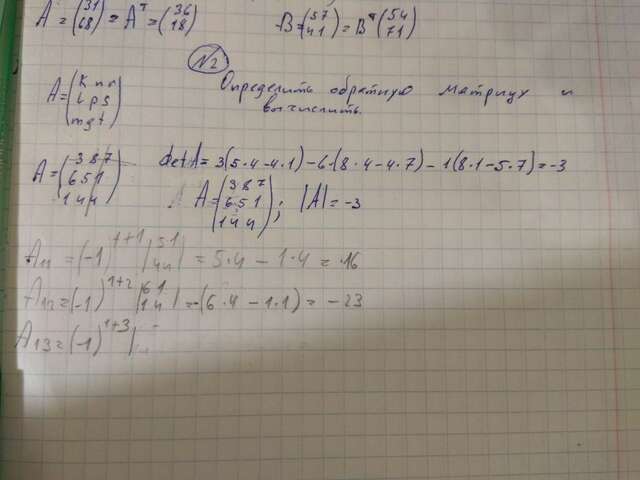 A = (31 68) = A^т = (36 18) B = (57 41) = B^т (54 71)
№2
A = (K n r L p s m g t) Определить обратную матрицу и
вычислить.
A = (387 651 144) det A = 3(5·4-4·1)-6·(8·4-4·7)-1(8·1-5·7)=-3
A = (387 651 144); |A| = -3
A11 = (-1)^1+1 |51 44| = 5·4 - 1·4 = 16
A12 = (-1)^1+2 |61 14| = -(6·4 - 1·1) = -23
A13 = (-1)^1+3 |...